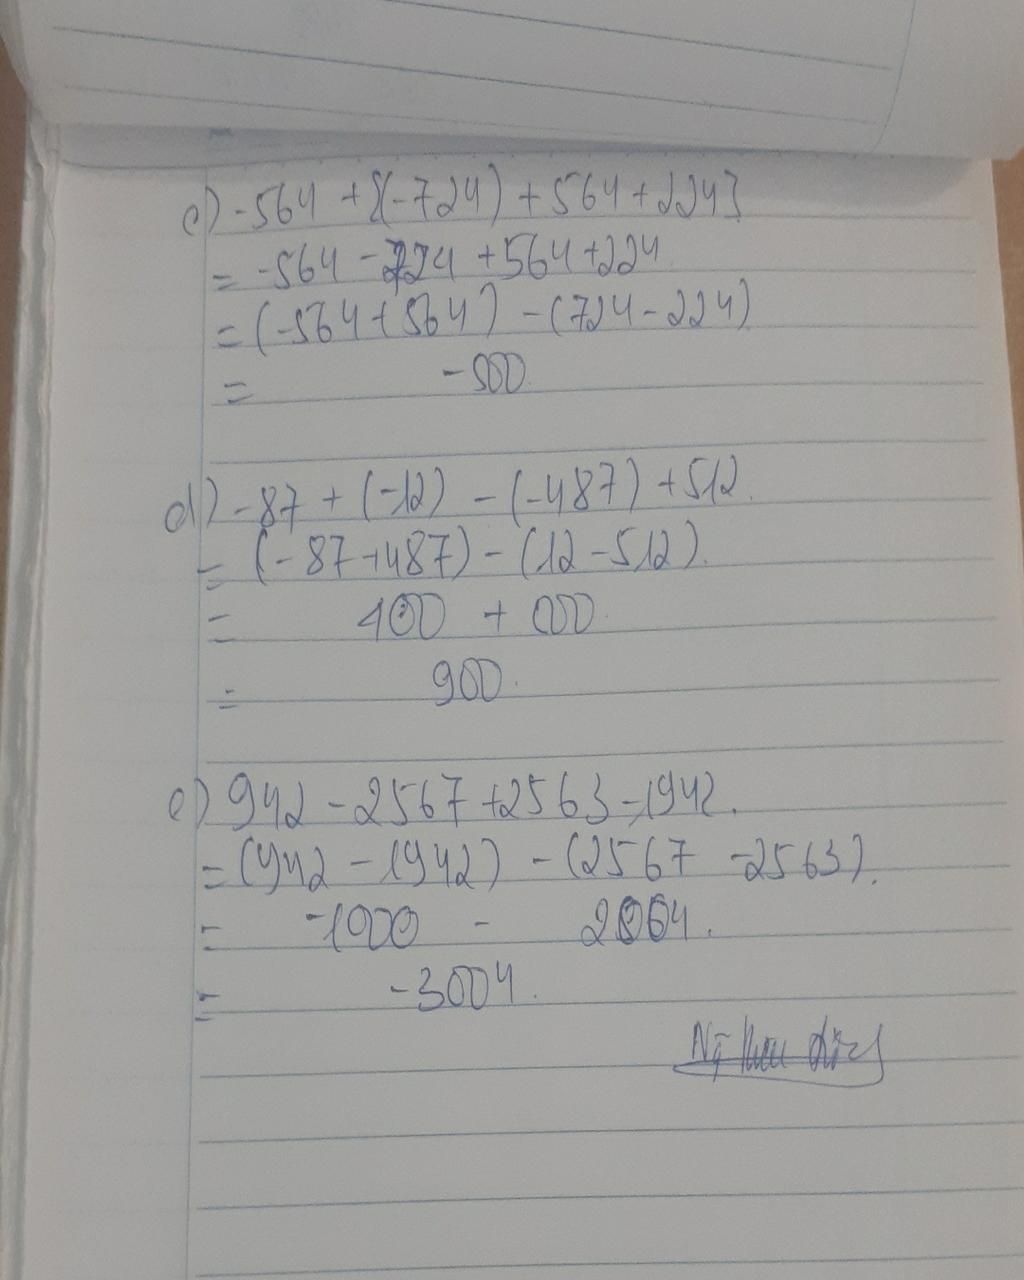 c) -564 + {(-724) + 564 + 224}
= -564 - 724 + 564 + 224
= (-564 + 564) - (724 - 224)
= -500
d) -87 + (-12) - (-487) + 512.
= (-87 + 487) - (12 - 512).
= 400 + 500.
= 900.
e) 942 - 2567 + 2563 - 1942.
= (942 - 1942) - (2567 - 2563).
= -1000 - 2004.
= -3004.